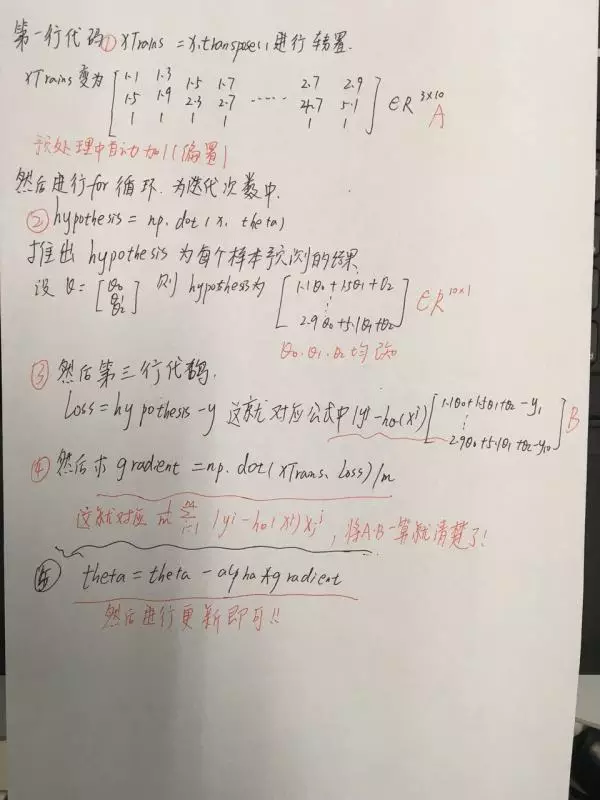 第一行代码① xTrains = x.transpose(),进行转置.
xTrains变为 [1.1 1.3 1.5 1.7 2.7 2.9
1.5 1.9 2.3 2.7 ····· 4.7 5.1
1 1 1 1 1 1] ∈R 3×10 A
预处理中自动加1(偏置)
然后进行for循环.为迭代次数中.
② hypothesis = np.dot(x, theta)
推出 hypothesis 为每个样本预测的结果
设 θ= [θ0 θ1 θ2] 则 hypothesis为 [1.1θ0+1.5θ1+θ2 ⋮ 2.9θ0+5.1θ1+θ2] ∈R 10×1
θ0.θ1.θ2均已知
③ 然后第三行代码.
Loss=hypothesis-y 这就对应公式中(yⁱ-hθ(xⁱ)) [1.1θ0+1.5θ1+θ2-y1 ⋮ 2.9θ0+5.1θ1+θ2-y10] B
④ 然后求gradient=np.dot(xTrans, Loss)/m
这就对应 1/m Σ i=1 m (yⁱ-hθ(xⁱ))xjⁱ ,将A·B一算就清楚了!
⑤ theta=theta - alpha*gradient
然后进行更新即可!!